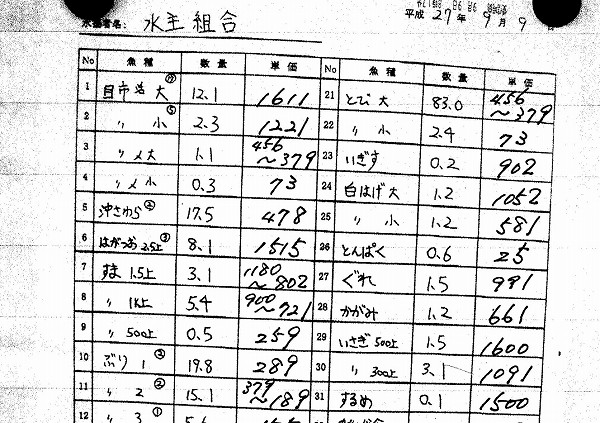 水主組合
平成 27年 9月 9
No 魚種 数量 単価
1 目市活大 ⑦ 12.1 1611
2 〃 小 ⑤ 2.3 1221
3 〃 〆大 1.1 456〜379
4 〃 〆小 0.3 73
5 沖さわら ② 17.5 478
6 はがつお 2.5上 ③ 8.1 1515
7 すま 1.5上 3.1 1180〜802
8 〃 1k上 5.4 900〜721
9 〃 500上 0.5 259
10 ぶり 1 ③ 19.8 289
11 〃 2 ② 15.1 379〜189
12 〃 3 ①
No 魚種 数量 単価
21 とび 大 83.0 456〜379
22 〃 小 2.4 73
23 いぎす 0.2 902
24 白はげ大 1.2 1052
25 〃 小 1.2 581
26 とんぱく 0.6 25
27 ぐれ 1.5 991
28 かがみ 1.2 661
29 いさぎ 500上 1.5 1600
30 〃 300上 3.1 1091
31 するめ 0.1 1500